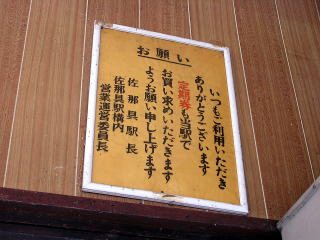 お願い
いつもご利用いただき
ありがとうございます
定期券も当駅で
お買い求めいただきます
ようお願い申し上げます
佐那具駅長
佐那具駅構内
営業運営委員長